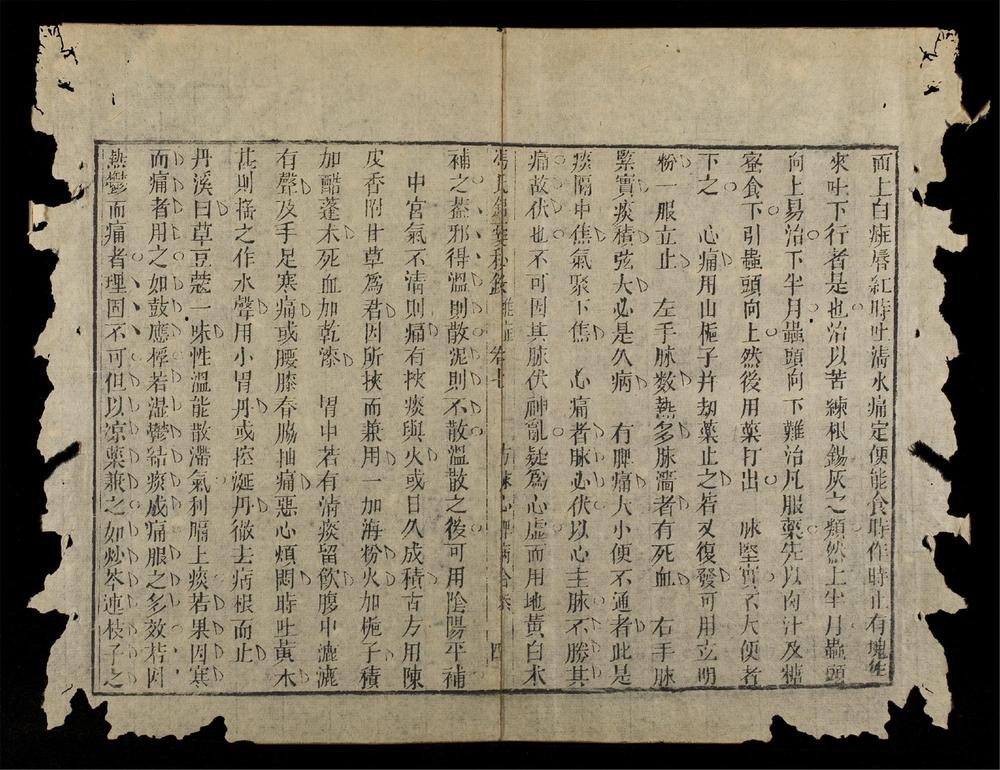 面上白痕唇紅時吐清水痛定便能食時作時止有塊梗
來吐下行者是也治以苦練根錫灰之類然上半月蟲頭
向上易治下半月蟲頭向下難治凡服藥先以肉汁及糖
蜜食下引蟲頭向上然後用藥打出　脉堅實不大便者
下之　心痛用山梔子并劫藥止之若又復發可用立明
粉一服立止　左手脉数熱多脉濇者有死血　右手脉
緊實痰積弦大必是久病　有脾痛大小便不通者此是
痰隔中焦氣聚下焦　心痛者脉必伏以心主脉不勝其
痛故伏也不可因其脉伏神亂疑爲心虛而用地黄白朮
馮氏錦囊秘录　雜症　卷七　方脉心脾病合參　四
補之葢邪得溫則散泥則不散溫散之後可用陰陽平補
中宮氣不清則痛有挾痰與火或日久成積古方用陳
皮香附甘草爲君因所挾而兼用一加海粉火加梔子積
加醋蓬术死血加乾漆　胃中若有清痰留飲腹中漉漉
有聲及手足寒痛或腰膝脊脇抽痛惡心煩悶時吐黄水
甚則搐之作水聲用小胃丹或控涎丹徹去病根而止
丹溪曰草豆蔻一味性溫能散滯氣利膈上痰若果因寒
而痛者用之如鼓應桴若濕鬱結痰成痛服之多效若因
熱鬱而痛者理固不可但以凉藥兼之如炒芩連枝子之